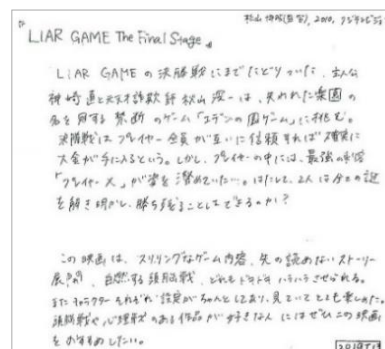 松山博昭(監督), 2010, フジテレビジョン
『LIAR GAME The Final Stage』
LIAR GAME の決勝戦にまでたどりついた、主人公
神崎直と天才詐欺師 秋山深一は、失われた楽園の
名を冠する禁断のゲーム「エデンの園ゲーム」に挑む。
決勝戦はプレイヤー全員が互いに信頼すれば確実に
大金が手に入るという。しかし、プレイヤーの中には、最強の刺客
「プレイヤーX」が姿を潜めていた…。はたして、2人は 謎
を解き明かし、勝ち残ることはできるのか?
この映画は、スリリングなゲーム内容、先の読めないストーリー
展開、白熱する頭脳戦、どれもドキドキハラハラさせられる。
またキャラクターそれぞれ設定がちゃんとしており、見ていてとても楽しめた。
頭脳戦や心理戦のある作品が好きな人にはぜひこの映画
をおすすめしたい。